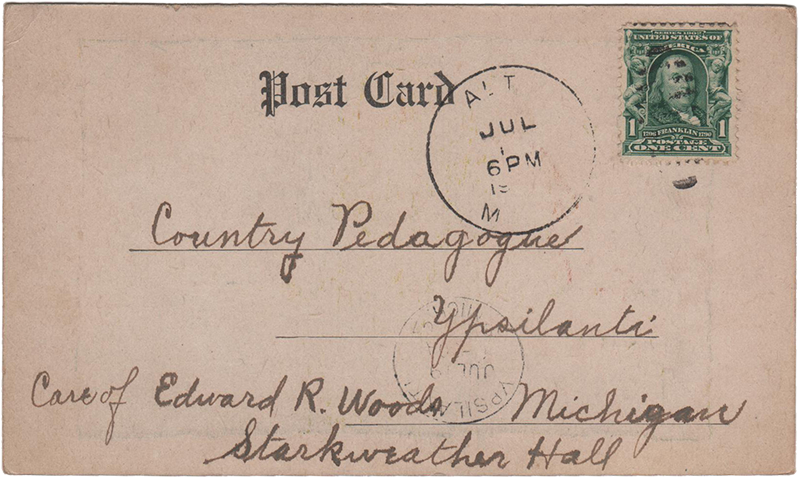 SERIES 1902
UNITED STATES OF
AMERICA
1 1
1706 FRANKLIN 1790
POSTAGE
ONE CENT
Post Card
ALT
JUL
1
6 PM
M
Country Pedagogue
Ypsilanti
Care of Edward R. Woods Michigan
Starkweather Hall
YPSILA
JUL
MICH